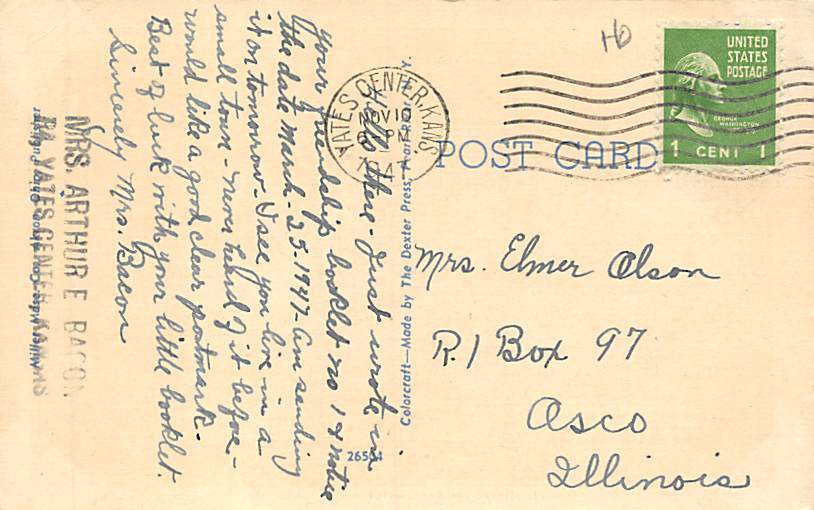 Hello there - Just wrote in
your friendship booklet no 1 & notice
the date March - 25 - 1947 - Am sending
it on tomorrow - I see you live in a
small town - never heard of it before -
would like a good clear postmark -
Best of luck with your little booklet.
Sincerely Mrs. Bacon
MRS. ARTHUR E BACON
YATES CENTER KANSAS
Colorcraft—Made by The Dexter Press, Pearl
26504
YATES CENTER, KANS
NOV 10
PM
1947
UNITED
STATES
POSTAGE
GEORGE
WASHINGTON
1 CENT 1
POST CARD
Mrs. Elmer Olson
R.1 Box 97
Osco
Illinois